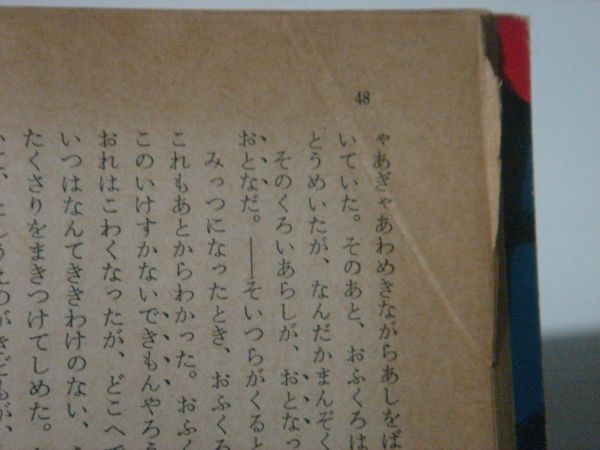 48
ゃあぎゃあわめきながらあしをば
いていた。そのあと、おふくろは
どうめいたが、なんだかまんぞく
そのくろいあらしが、おとなっ
おとなだ。――そいつらがくると
みっつになったとき、おふくろ
これもあとからわかった。おふく
このいけすかないできもんやろう
おれはこわくなったが、どこへで
いつはなんてききわけのない、
たくさりをまきつけてしめた。